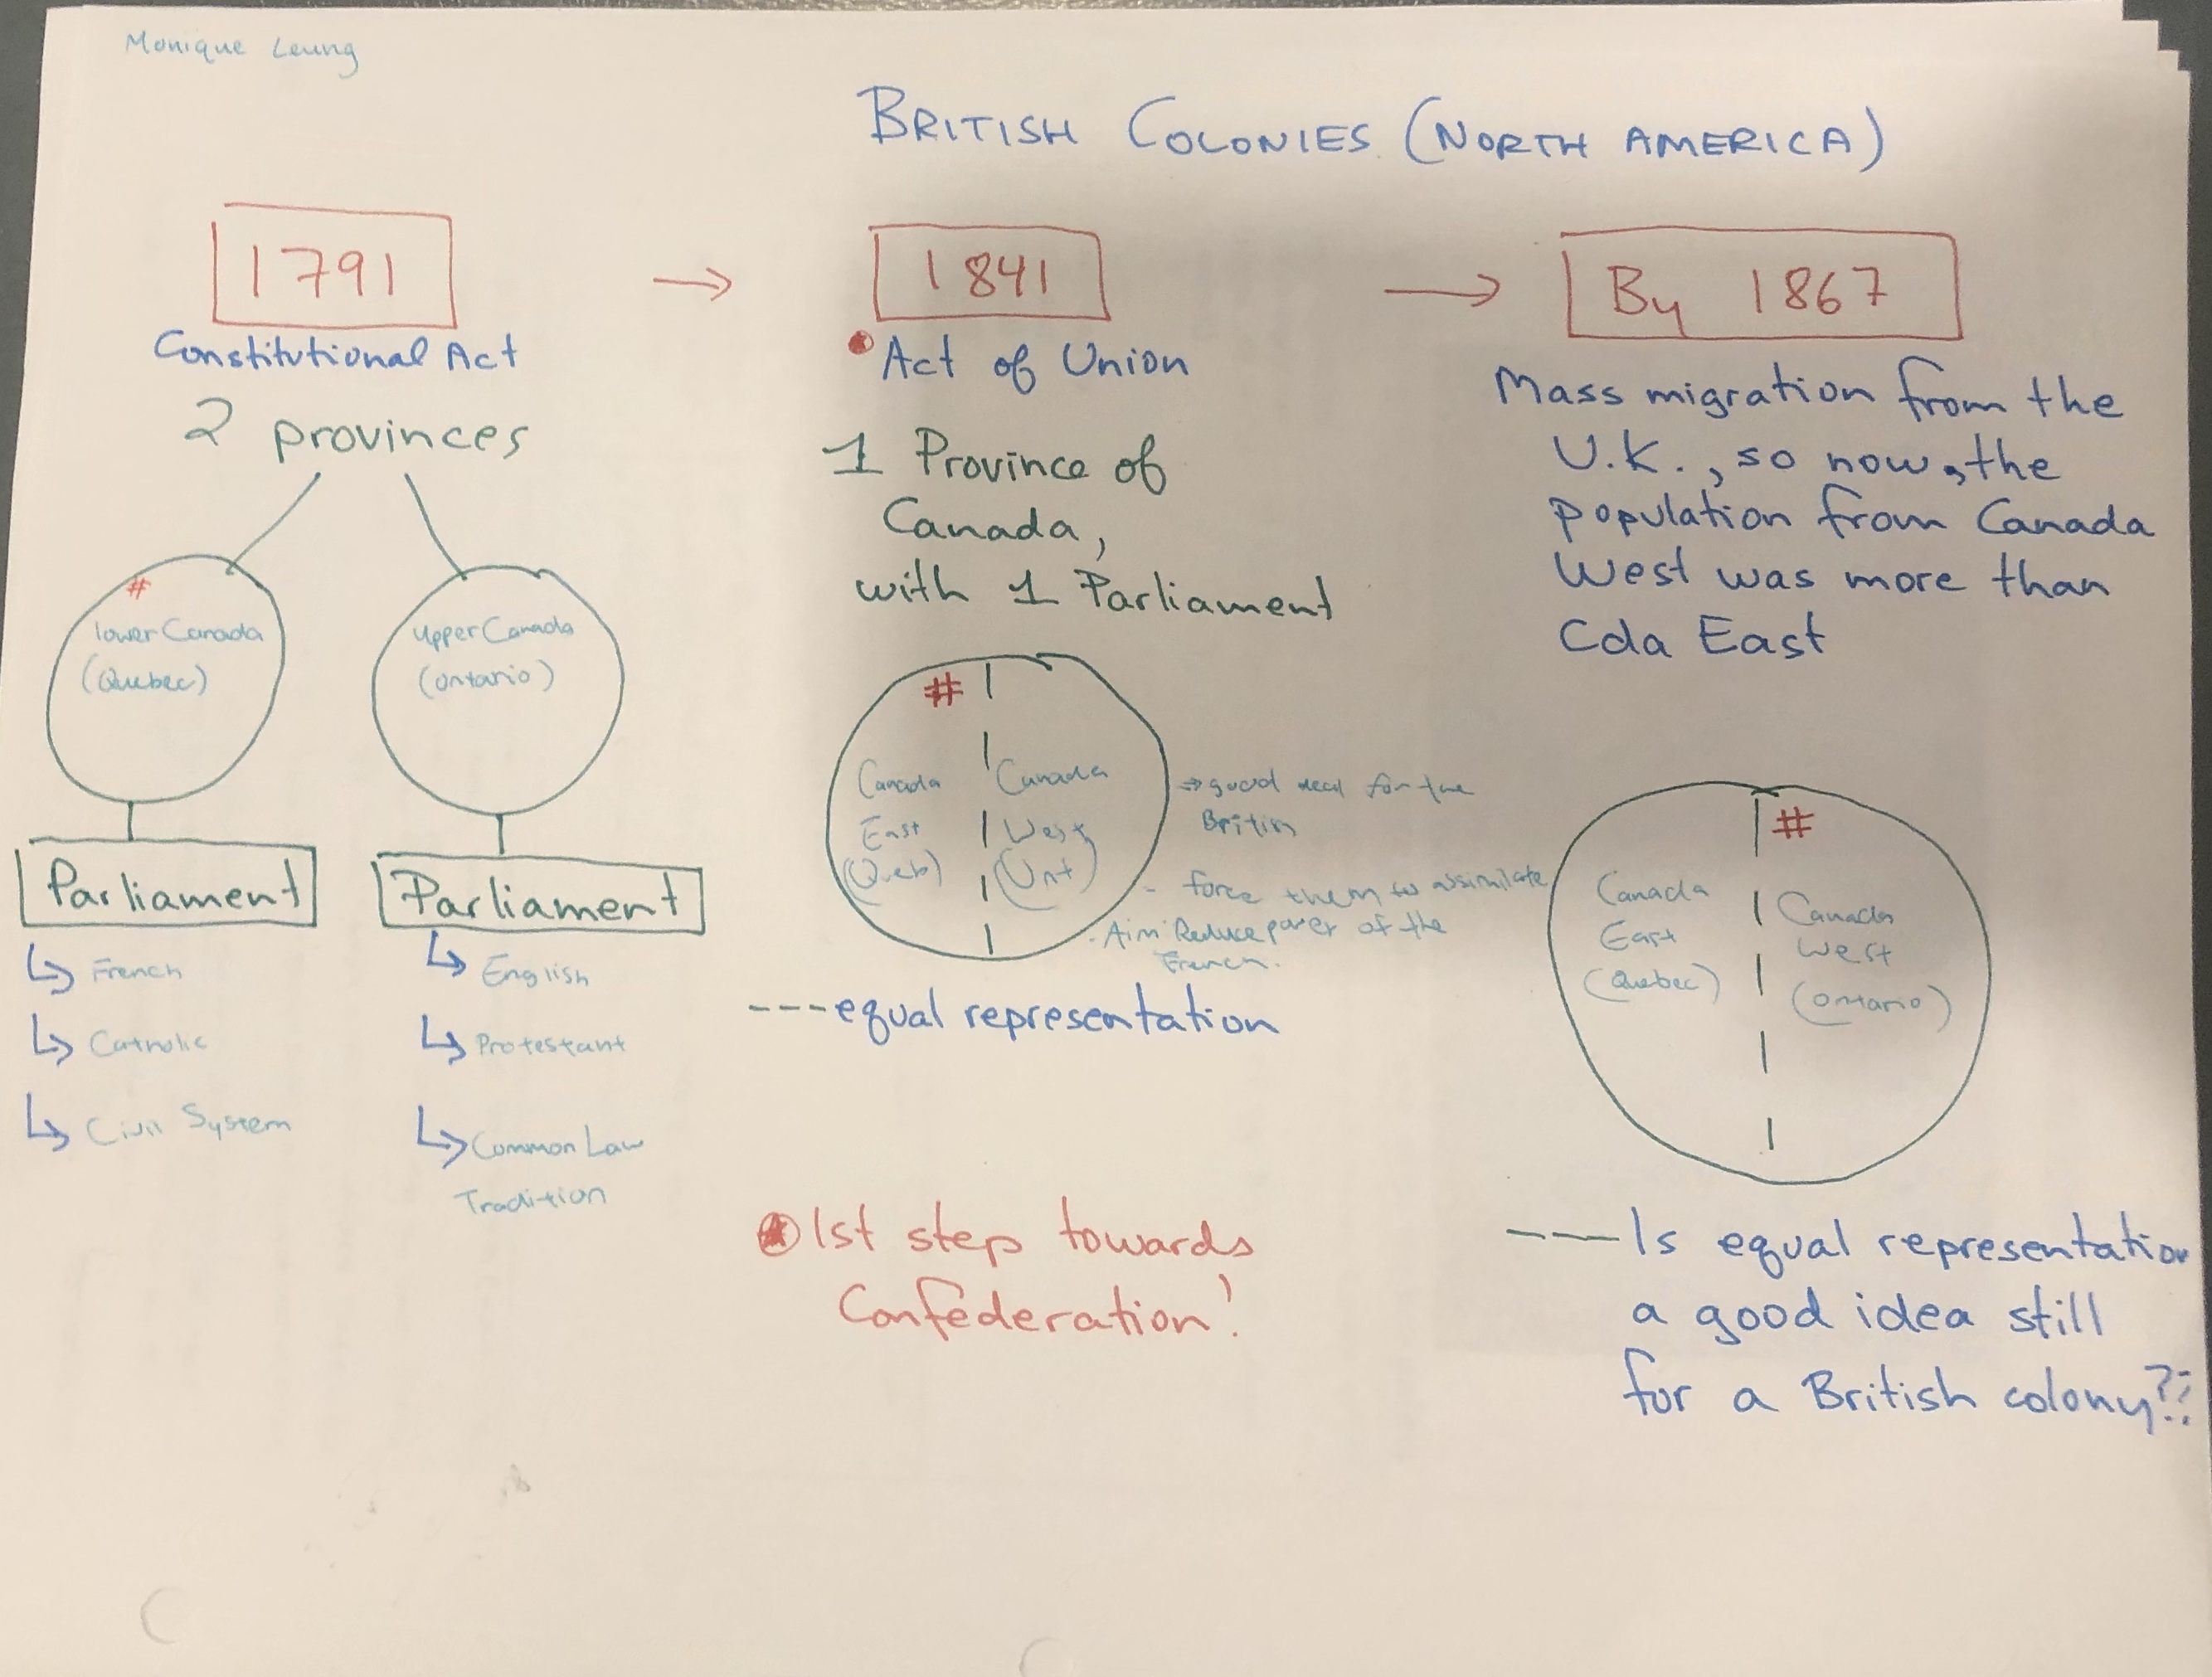 Monique Leung
BRITISH COLONIES (NORTH AMERICA)
1791
Constitutional Act
2 provinces
#
lower Canada
(Quebec)
upper Canada
(ontario)
Parliament
Parliament
↳ French
↳ Catholic
↳ Civil System
↳ English
↳ Protestant
↳ Common Law
Tradition
→
1841
• Act of Union
1 Province of
Canada,
with 1 Parliament
#
Canada
East
(Queb)
Canada
West
(Ont)
⇒ good deal for the
British
- force them to assimilate
- Aim: Reduce power of the
French.
--- equal representation
• 1st step towards
Confederation!
→
By 1867
Mass migration from the
U.K., so now, the
population from Canada
West was more than
Cda East
#
Canada
East
(Quebec)
Canada
West
(ontario)
--- Is equal representation
a good idea still
for a British colony??